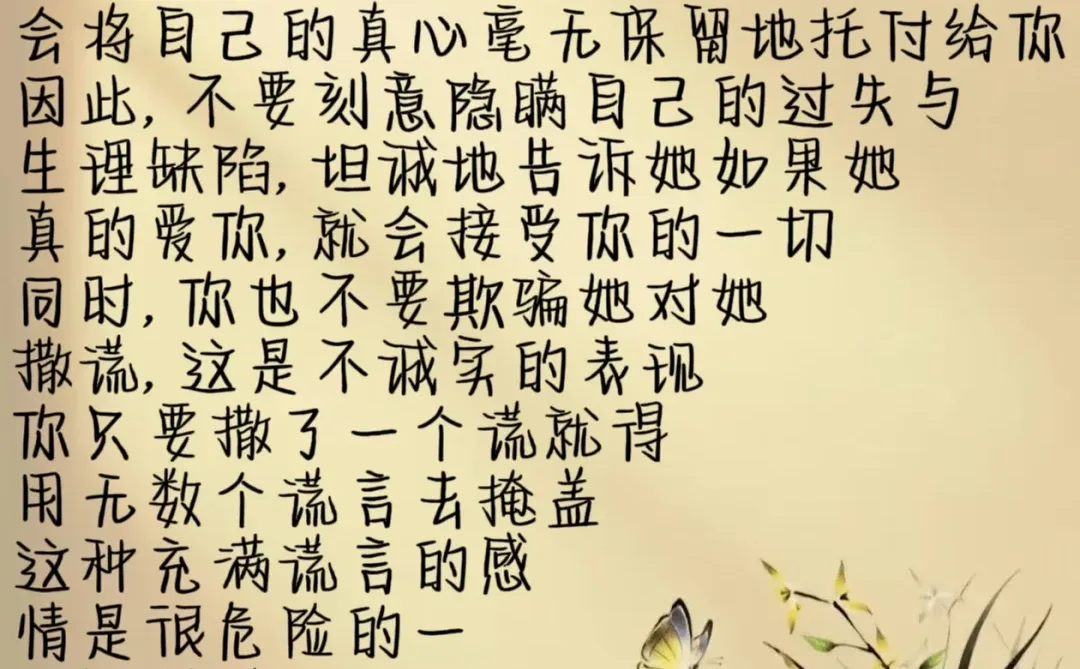 会将自己的真心毫无保留地托付给你
因此,不要刻意隐瞒自己的过失与
生理缺陷,坦诚地告诉她如果她
真的爱你,就会接受你的一切
同时,你也不要欺骗她对她
撒谎,这是不诚实的表现
你只要撒了一个谎就得
用无数个谎言去掩盖
这种充满谎言的感
情是很危险的一